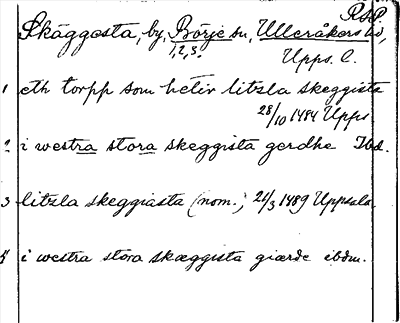 R.S.P.
Skäggesta, by, Börje sn, Ulleråkers hd,
1, 2, 3.
Upps. l.
1 eth torpp som hetir litzla skeggista
28/10 1484 Upps
2 i westra stora skeggista gerdhe Ibd.
3 litzla skeggiasta (nom.) 21/3 1489 Uppsala.
i westra stora skæggista giærde ibdm.